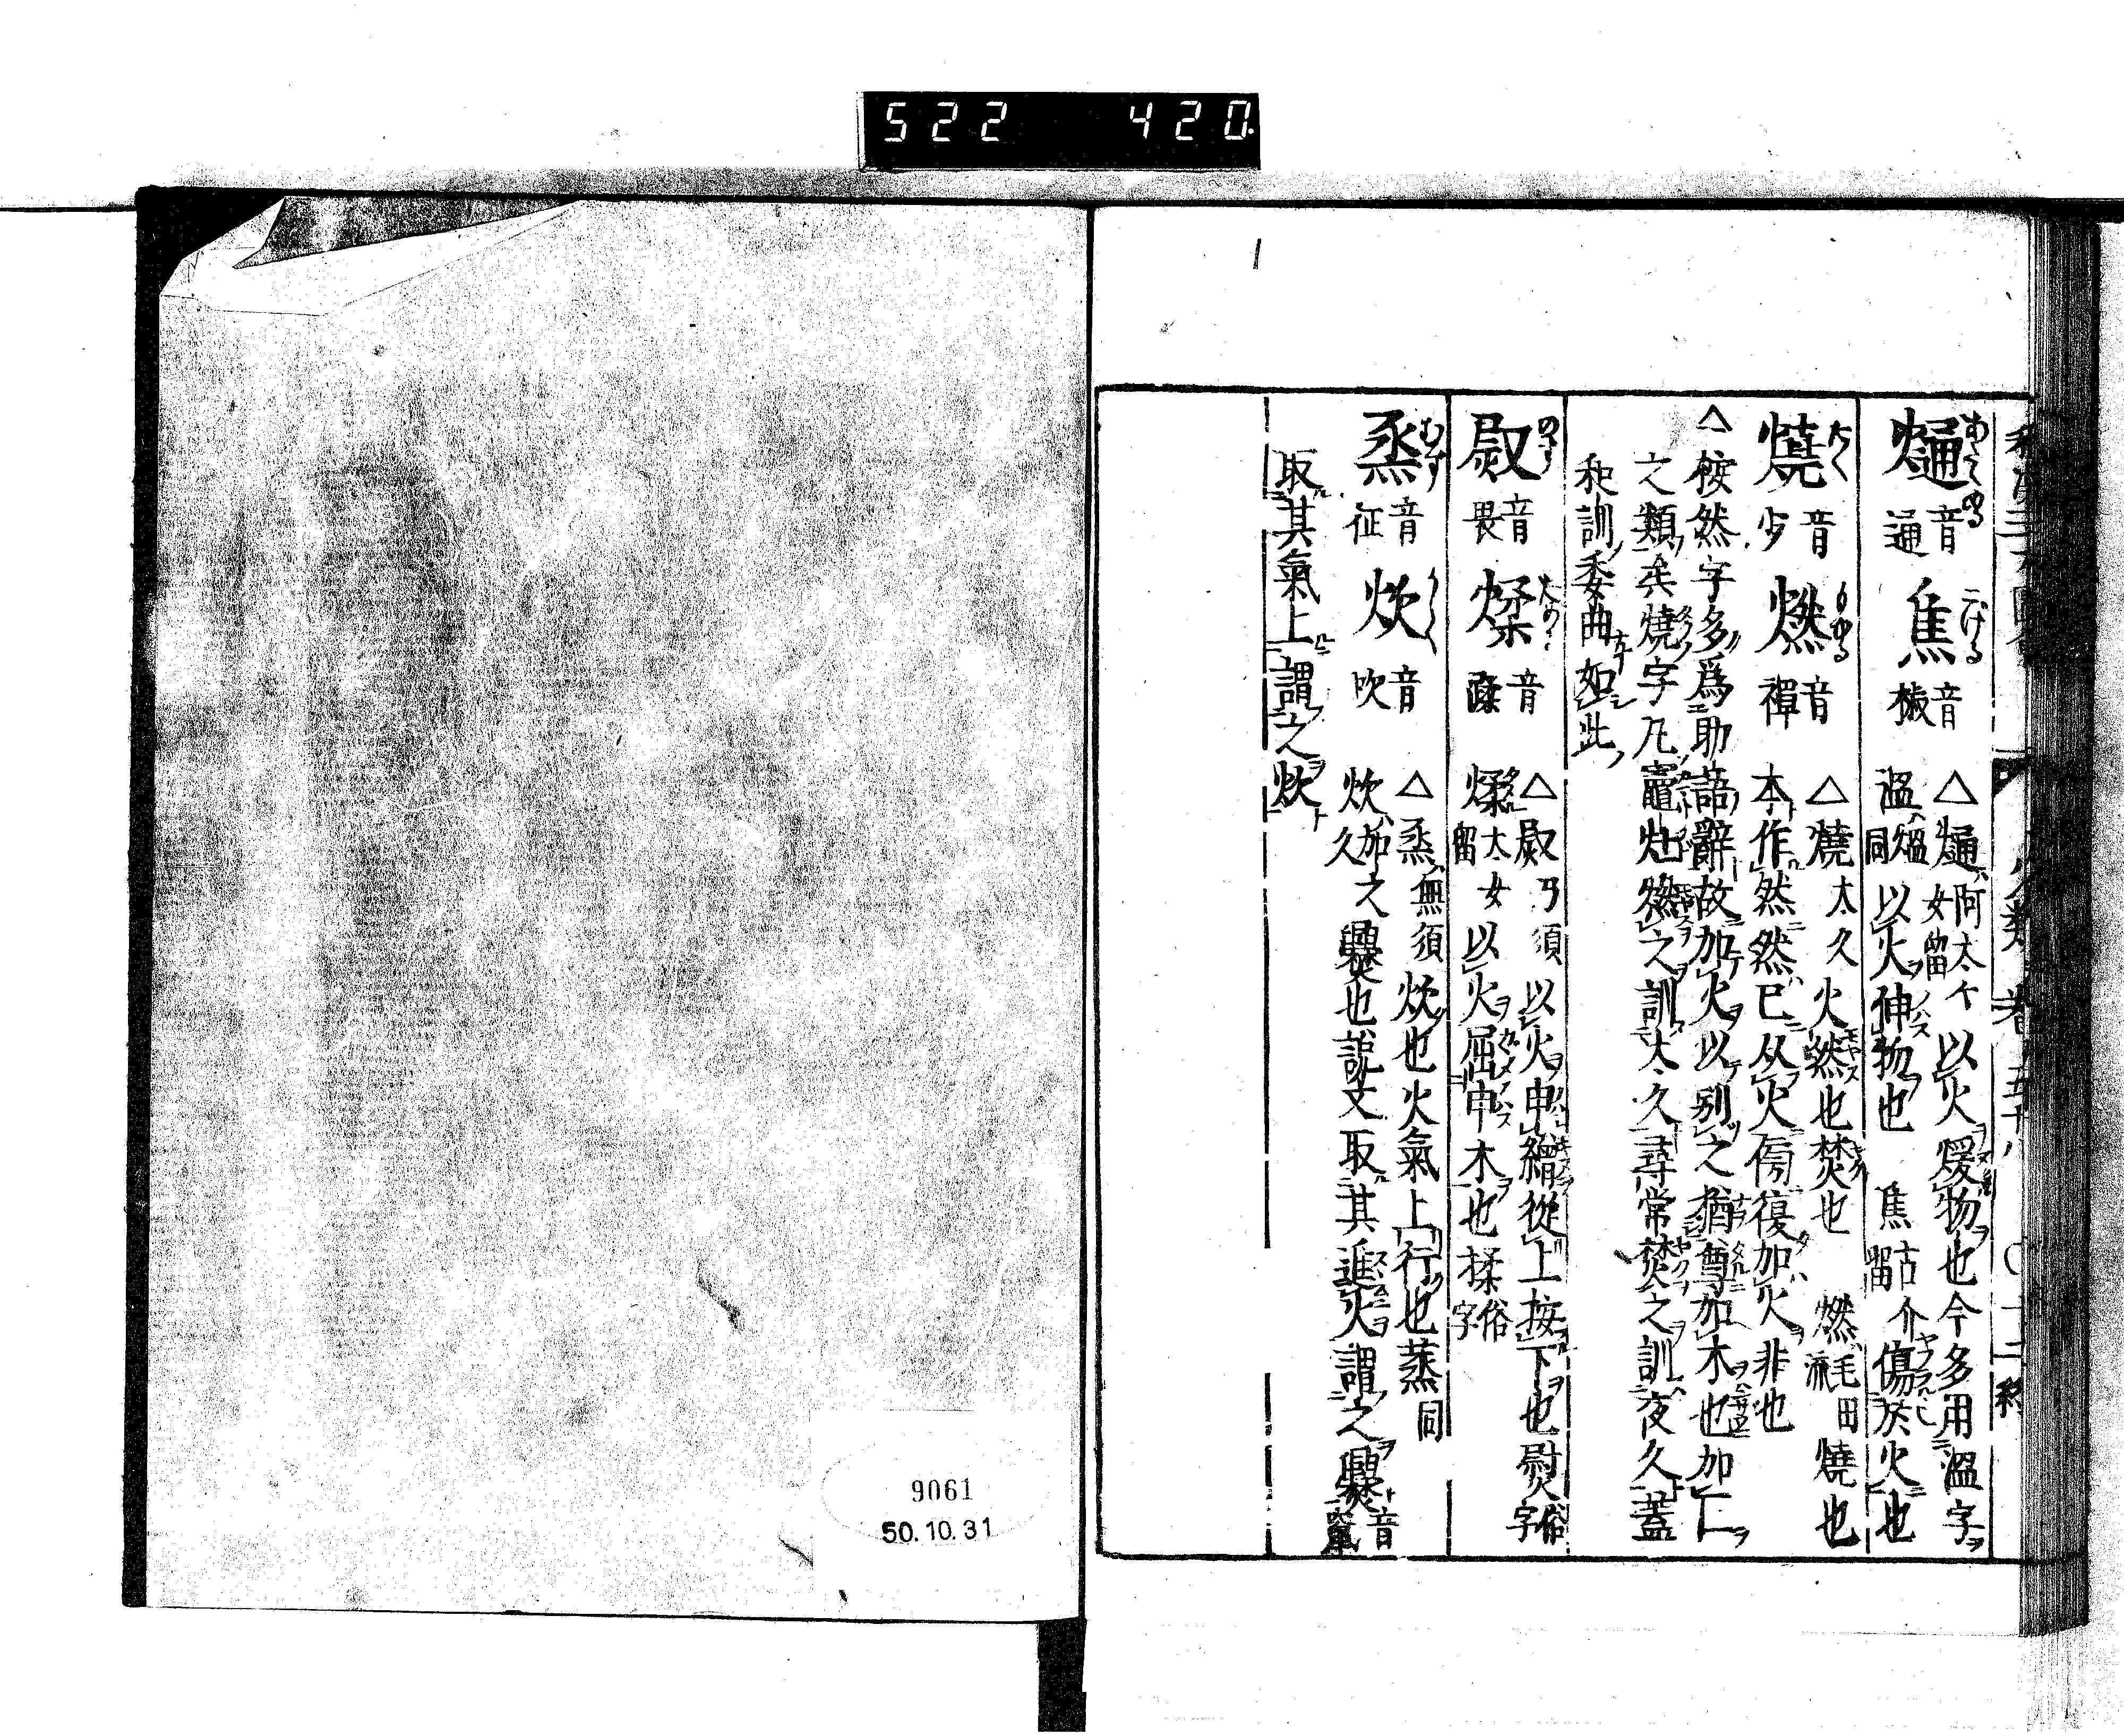 522 420
火類 巻五十八 〇十二終
あたゝめる 㷶 音通 こげる 焦 音樵
△㷶阿太々女留以火煖物也今多用溫字
溫熅同以火伸物也 焦古介留傷於火也
たく 燒 音少 もゆる 燃 音禪
△燒太久火然也焚也 燃毛由流燒也
本作然然已从火傍復加火非也
△按然字多爲助語辭故加火以別之猶尊加木也加仁
之類矣燒字凡竈灶燃之訓太久尋常焚之訓夜久蓋
和訓委曲如此
のす 㷉 音畏 ためる 煣 音蹂
△㷉乃須以火申繒從上按下也熨俗字
煣太女留以火屈申木也揉俗字
むす 烝 音征 かしく 炊 音吹
△烝無須炊也火氣上行也蒸同
炊加之久爨也說文取其進火謂之爨音竄
取其氣上謂之炊
9061
50.10.31